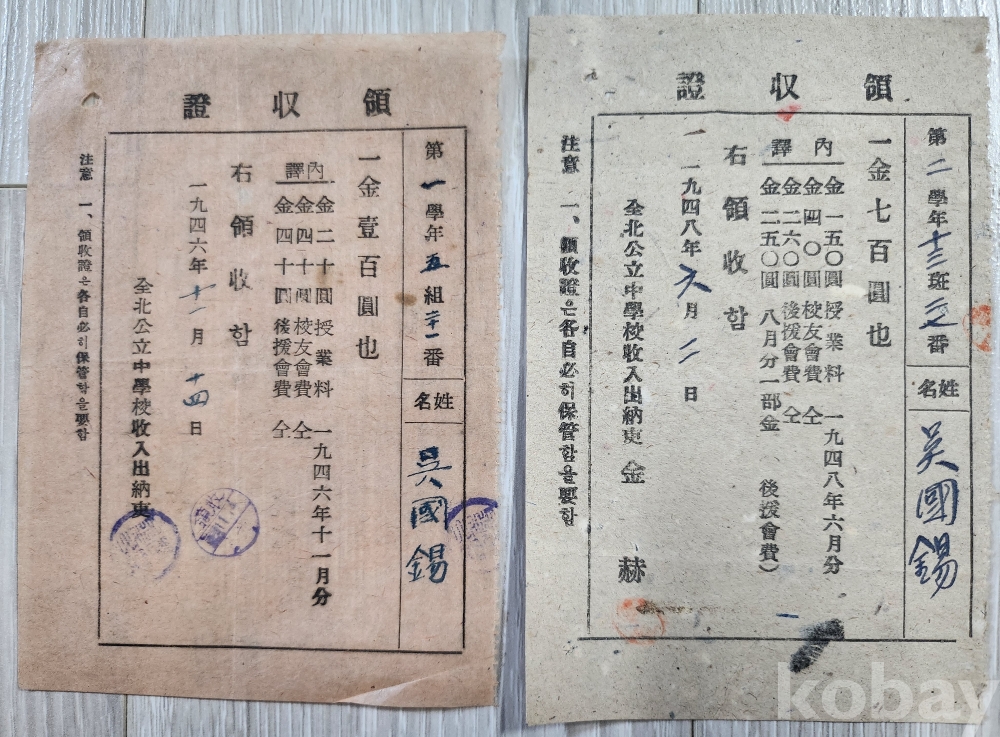 領收證
第一學年五組三十一番
姓名
吳國錫
一金壹百圓也
內譯
金二十圓 授業料 一九四六年十一月分
金四十圓 校友會費 仝
金四十圓 後援會費 仝
右領收함
一九四六年十一月十四日
全北公立中學校收入出納吏
注意 一、領收證은各自必히保管함을要함
領收證
第二學年十三班
番
姓名
吳國錫
一金七百圓也
內譯
金一五〇圓 授業料 一九四八年六月分
金四〇圓 校友會費 仝
金二六〇圓 後援會費 仝
金二五〇圓 八月分一部金 後援會費)
右領收함
一九四八年六月二日
全北公立中學校收入出納吏 金 赫
注意 一、領收證은各自必히保管함을要함
kobay